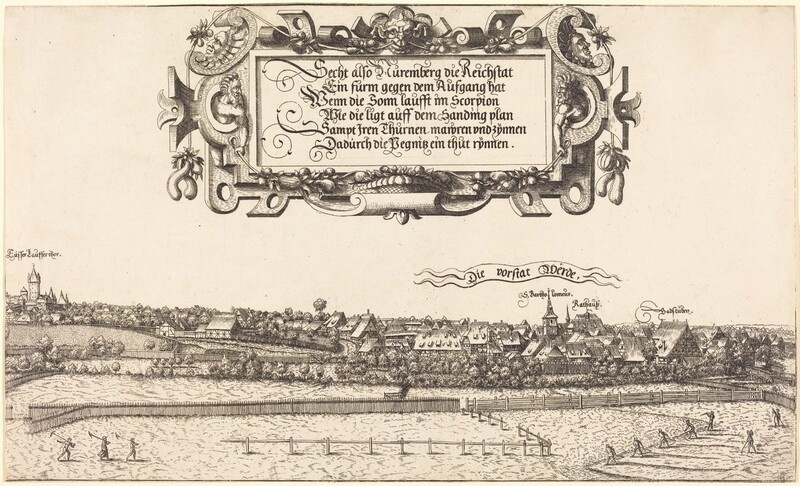 Secht also Nüremberg die Reichstat
Ein fürm gegen dem Aufgang hat
Wenn die Sonn laufft im Scorpion
Wie die ligt auff dem Sanding plan
Sampt Jren Thürnen maworen vnd zÿnnen
Dadürch die Pegnitz ein thüt rÿnnen.
Lauffer thor.
Die vorstat Wërde.
S. Bartholomeus.
Rathauß.
Badstuben.